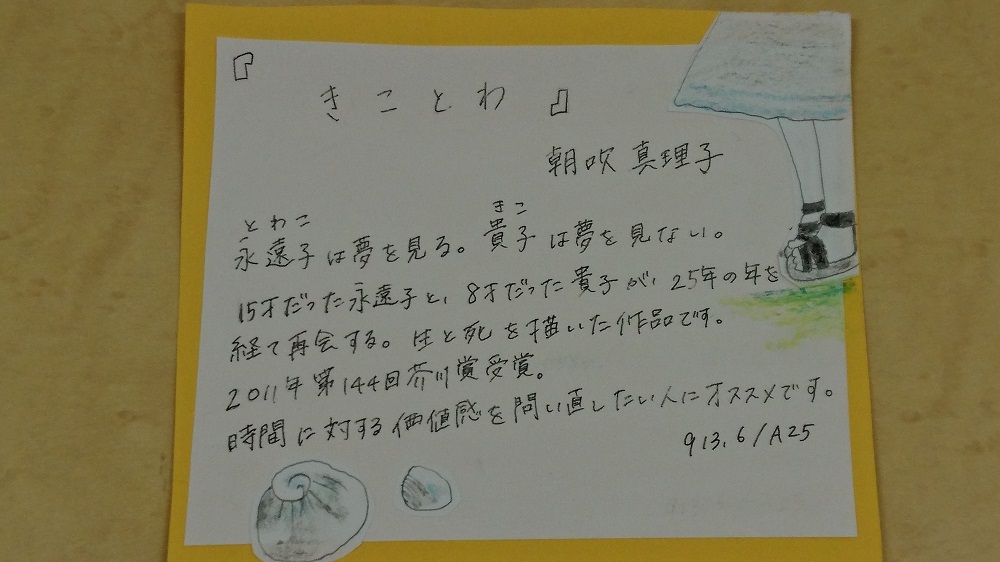 『きことわ』
朝吹 真理子
とわこ きこ
永遠子は夢を見る。貴子は夢を見ない。
15才だった永遠子と、8才だった貴子が、25年の年を
経て再会する。生と死を描いた作品です。
2011年第144回芥川賞受賞。
時間に対する価値感を問い直したい人にオススメです。
913.6/A25